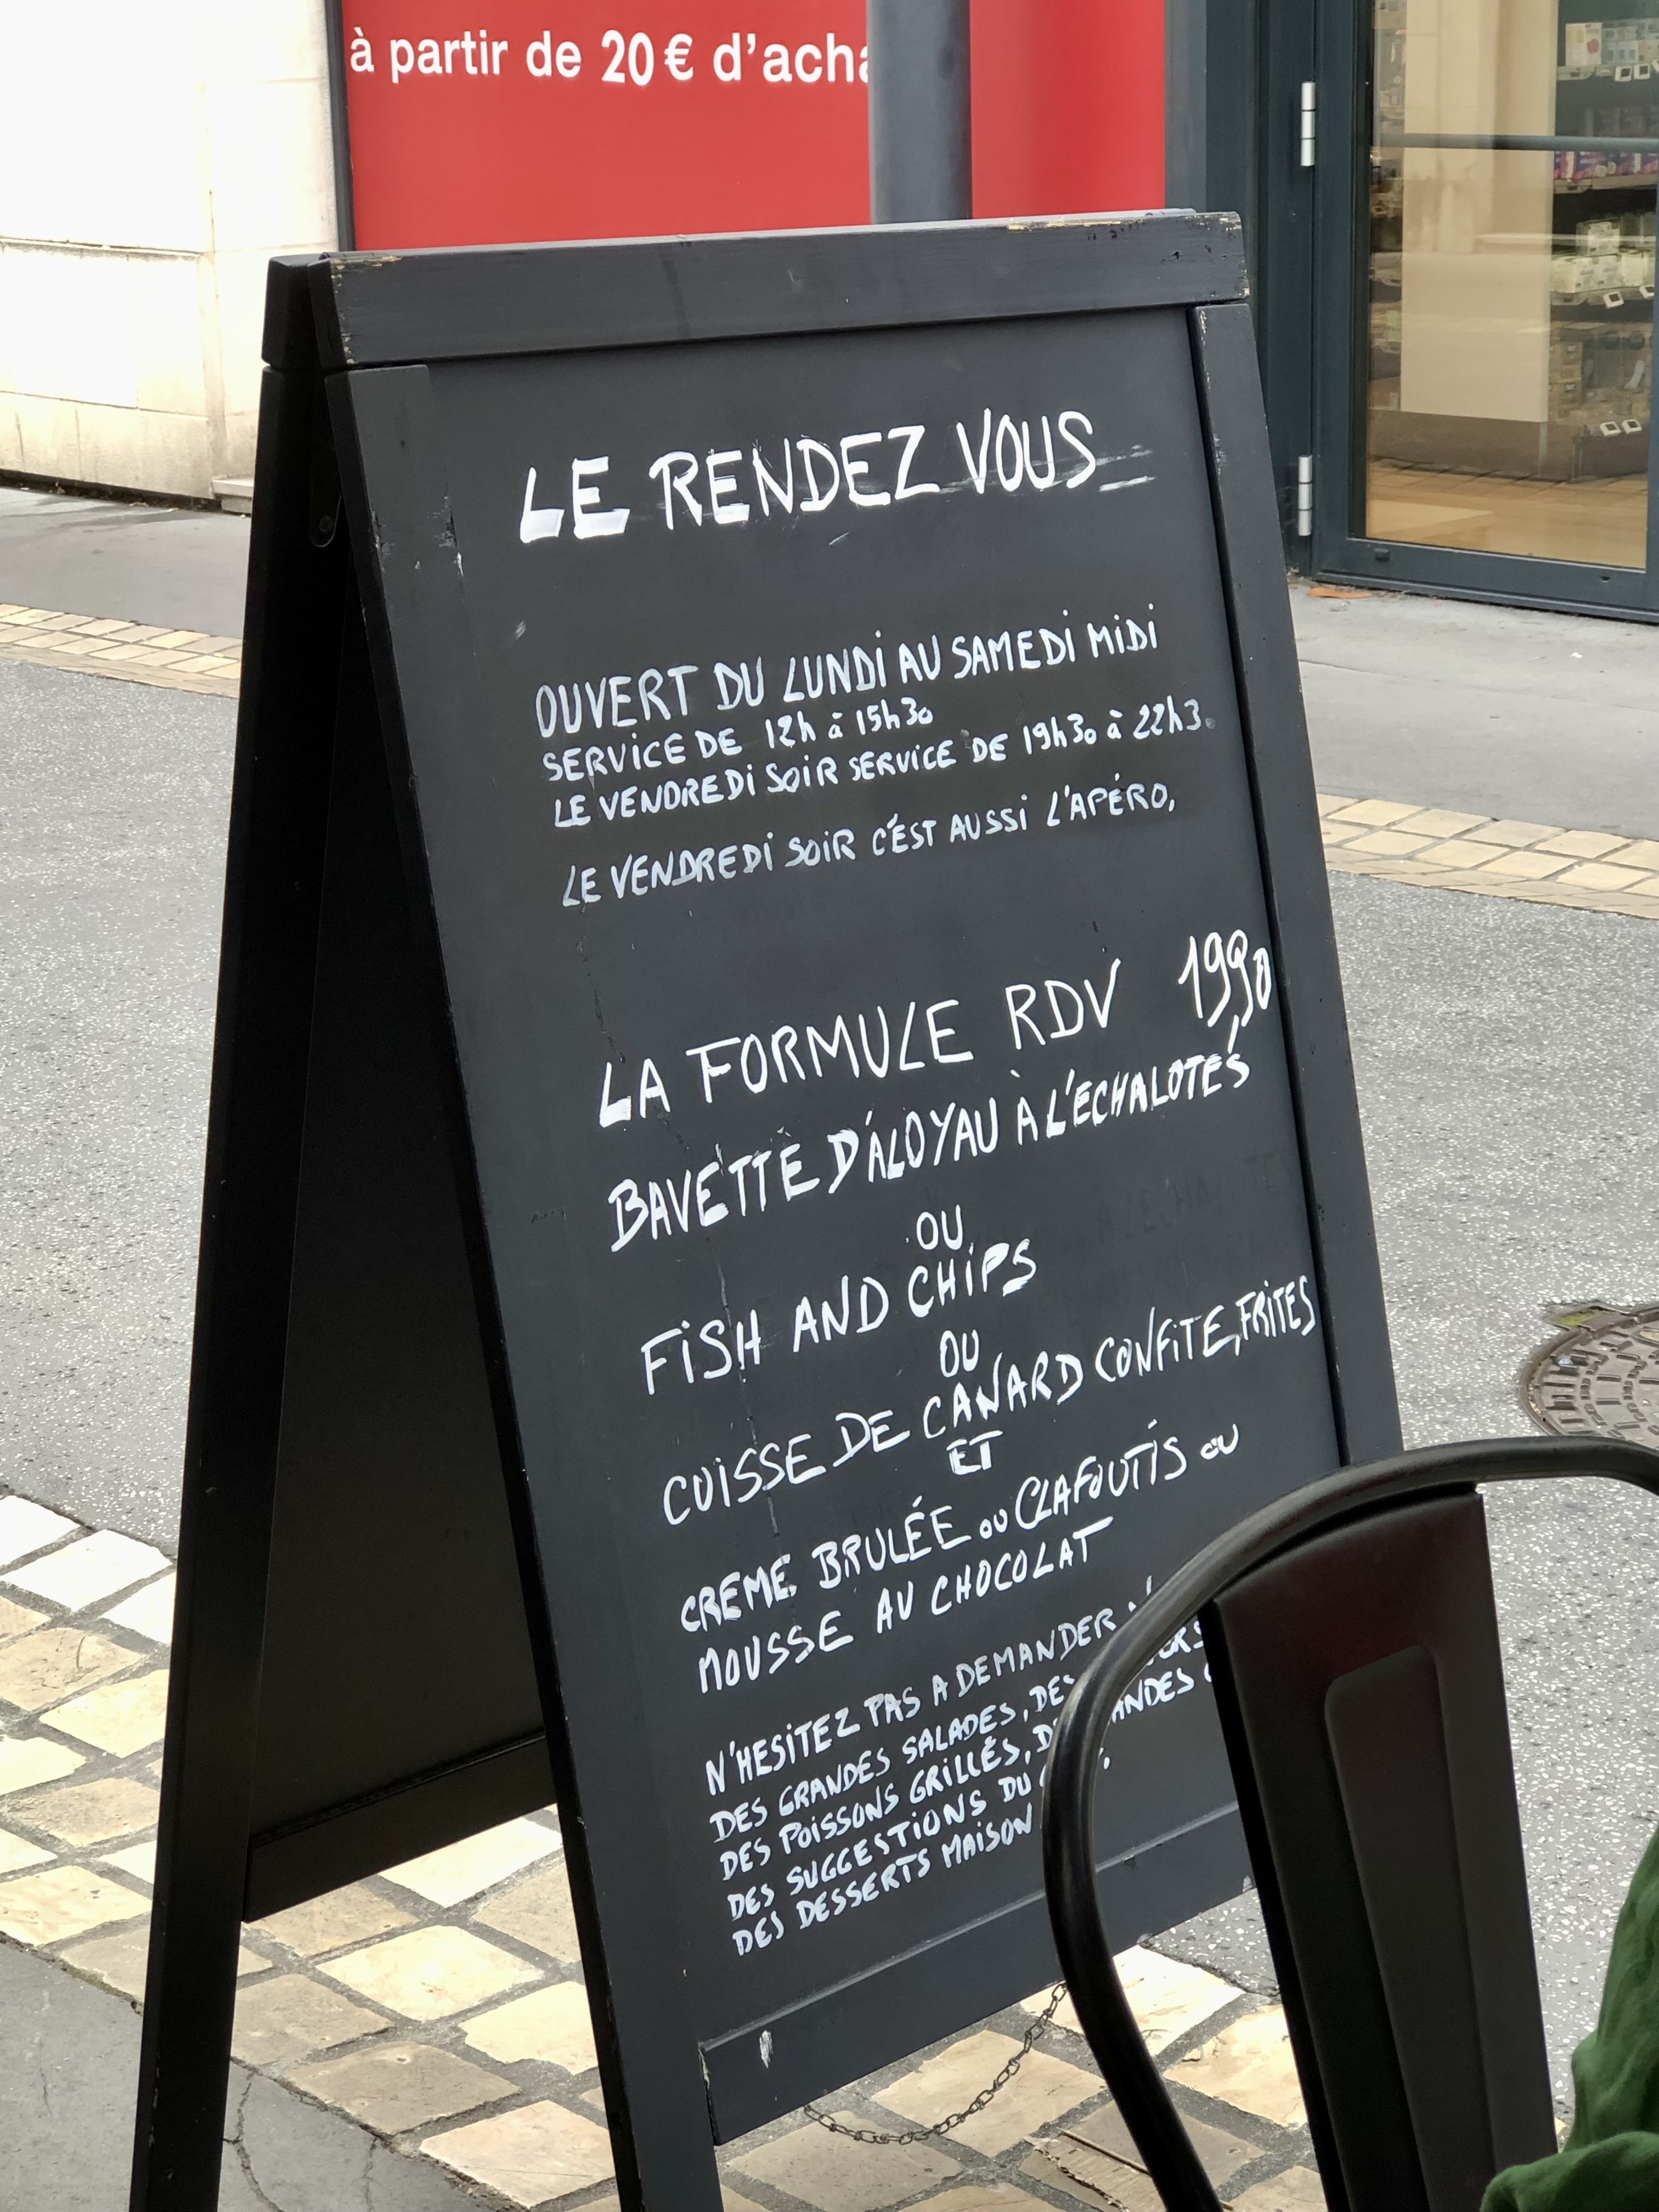 à partir de 20€
LE RENDEZ VOUS
OUVERT DU LUNDI AU SAMEDI MIDI
SERVICE DE 12h à 15h30
LE VENDREDI SOIR SERVICE DE 19h30 à 22h3
LE VENDREDI SOIR C'EST AUSSI L'APÉRO,
LA FORMULE RDV 1990
BAVETTE D'ALOYAU À L'ECHALOTES
OU
FISH AND CHIPS
OU
CUISSE DE CANARD CONFITE, FRITES
ET
CREME BRULÉE OU CLAFOUTIS OU
MOUSSE AU CHOCOLAT
N'HESITEZ PAS A DEMANDER
DES GRANDES SALADES, DES
DES POISSONS GRILLÉS,
DES SUGGESTIONS DU
DES DESSERTS MAISON